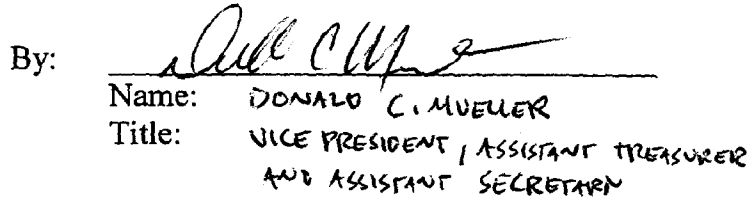 By: Donald C Mueller
Name: DONALD C. MUELLER
Title: VICE PRESIDENT, ASSISTANT TREASURER
AND ASSISTANT SECRETARY